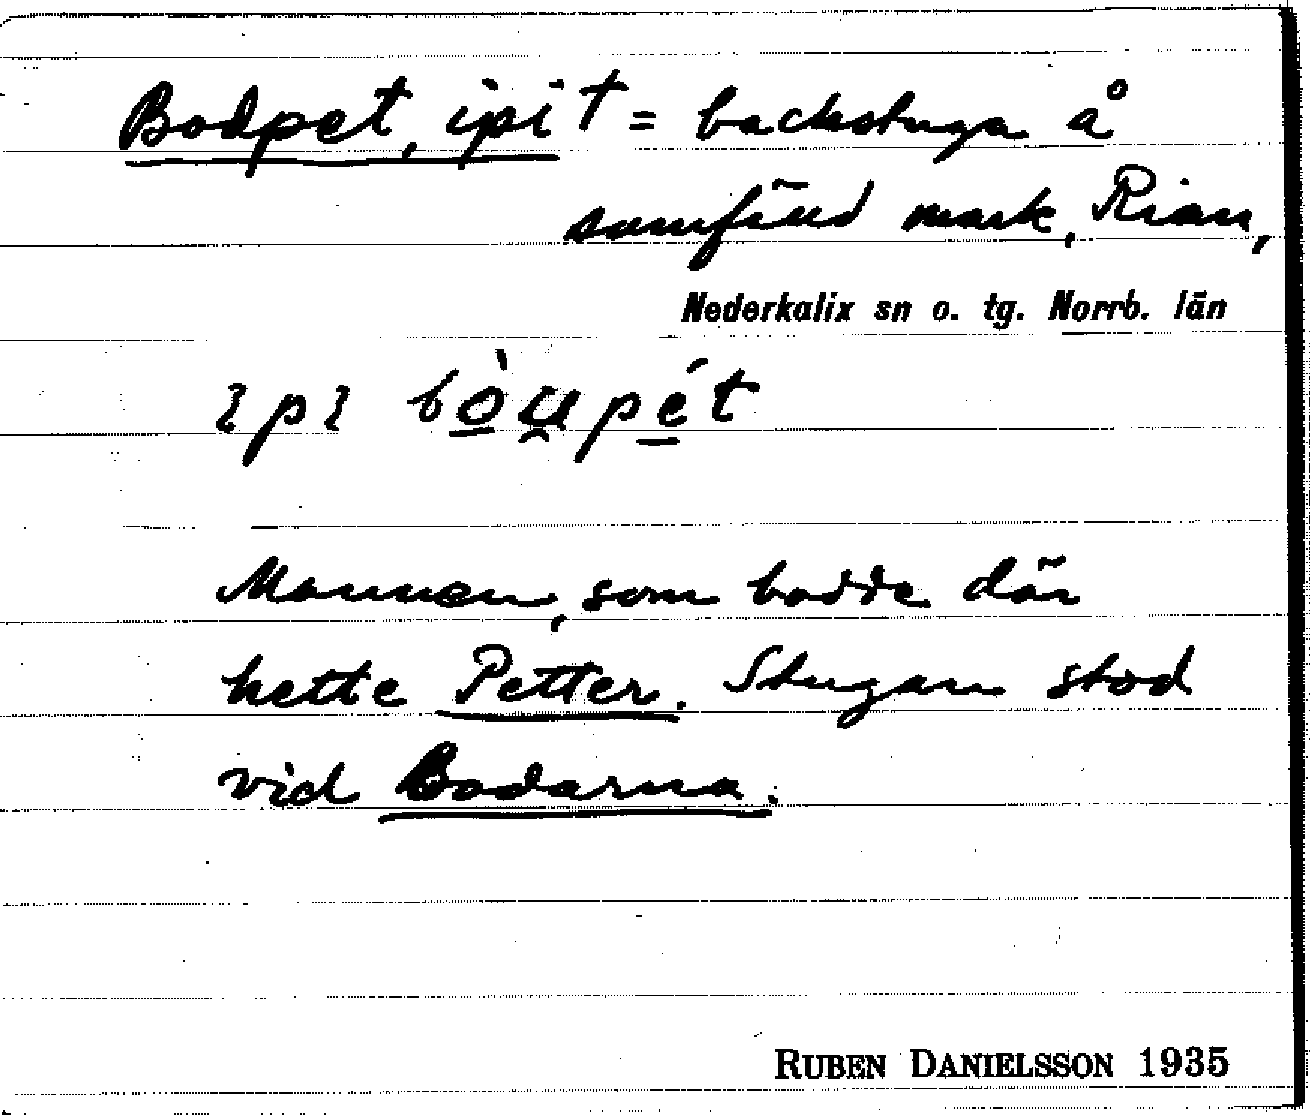 Bodpet, ipi † = backstuga å
samfäld mark, Rian,
Nederkalix sn o. tg. Norrb. län
ɩpɩ bò̲u̯pé̲t
Mannen, som bodde där
hette Petter. Stugan stod
vid Bodarna.
RUBEN DANIELSSON 1935